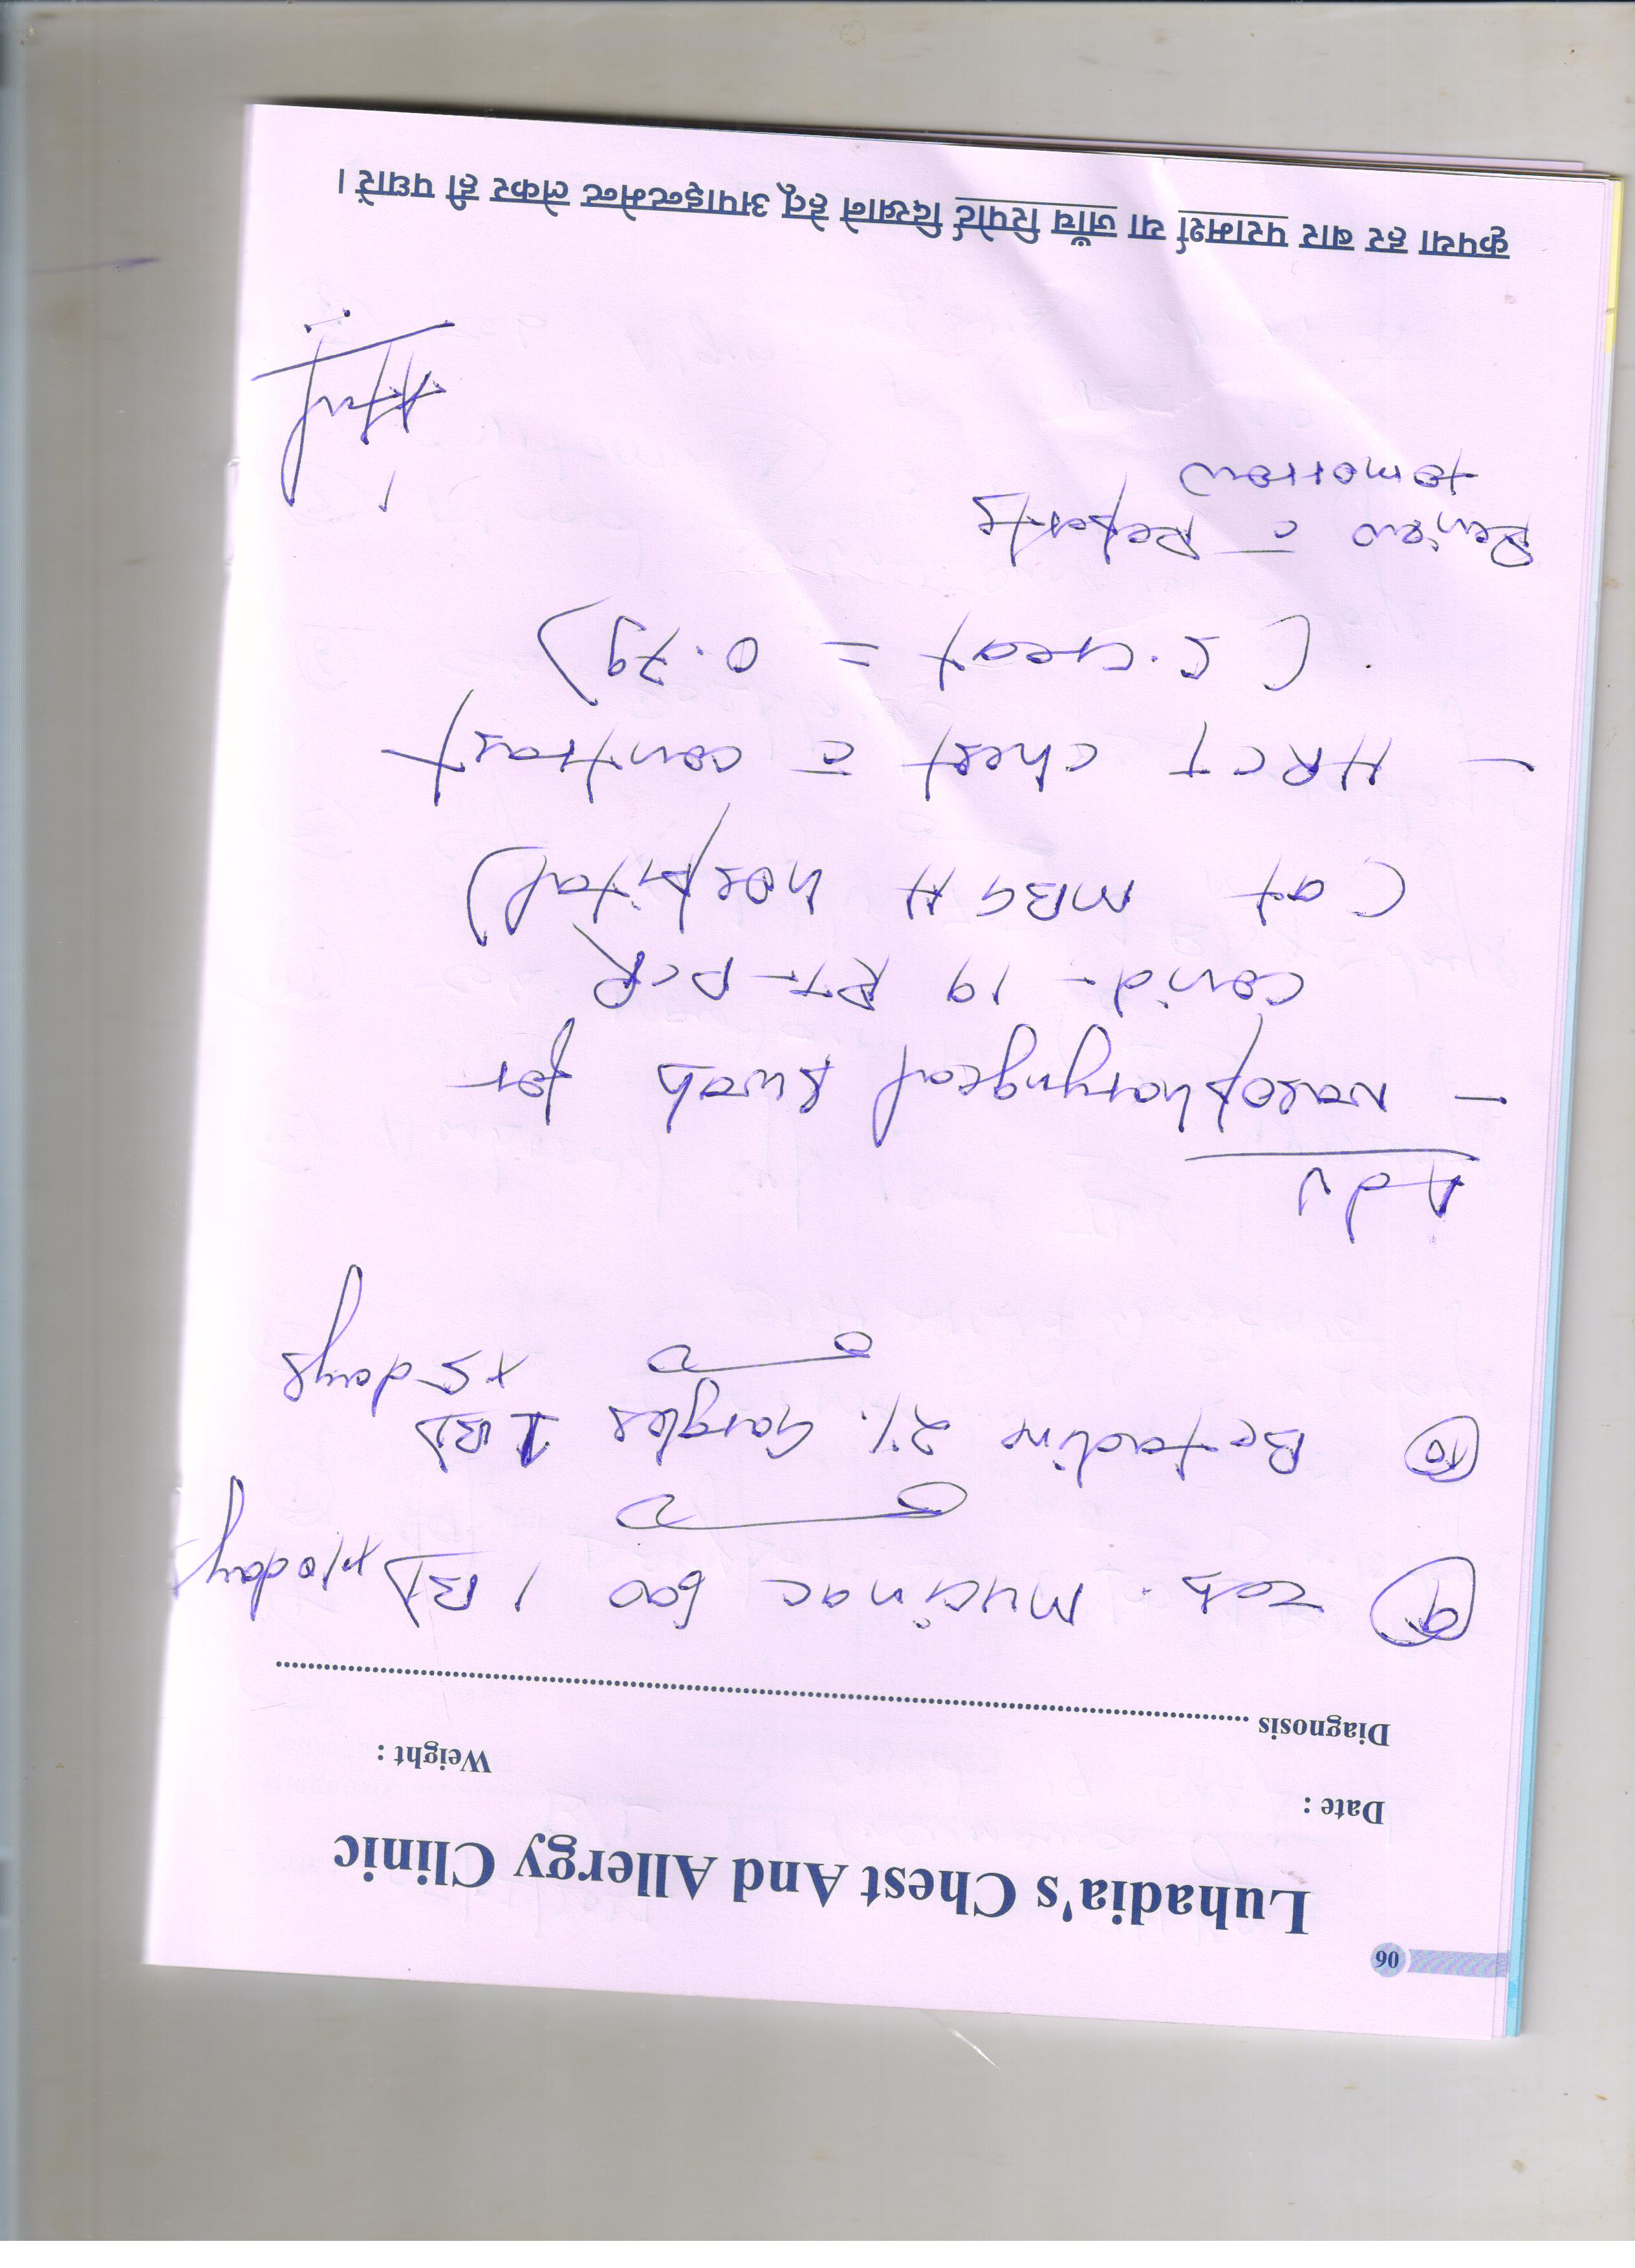 06
Luhadia's Chest And Allergy Clinic
Date :
Weight :
Diagnosis
9 Tab. Mucinac 600 1 BD x10days
10 Betadine 2% Gargles 1 BD
x5 days
Adv
- Nasopharyngeal swab for
covid-19 RT-PCR
(at MBGH hospital)
- HRCT chest c̄ contrast
(S. creat = 0.79)
Review c̄ Reports
tomorrow
कृपया हर बार परामर्श या जाँच रिपोर्ट दिखाने हेतू अपाइन्टमेन्ट लेकर ही पधारें।